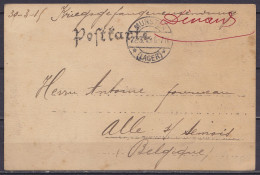 30-3-15 Kriegsgefangenensendung
Dinant
Postkarte
MUNSTER
(LAGER)
Herrn Antoine fourneau
Alle s/ Semois
Belgique